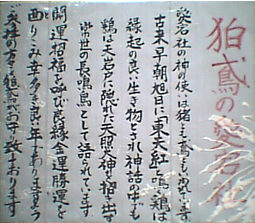 狛鳶の愛宕社
愛宕社の神の使いは猪とも鳶ともいわれています
古来、早朝旭日に東天紅と鳴く鶏は
縁起の良い生き物とされ神話の中でも
鶏は天岩戸に隠れた天照大神を招き出す
常世の長鳴鳥として語られてます
開運招福を呼び良縁金運勝運を
酉りこみ幸多き良い年となりますよう
柱の右の狛鳶がお守り致しております